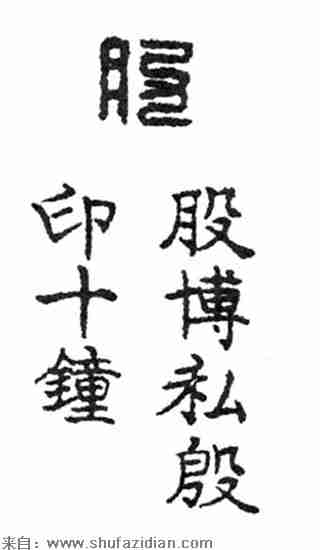 股
股博私殷
印十鐘
来自：www.shufazidian.com